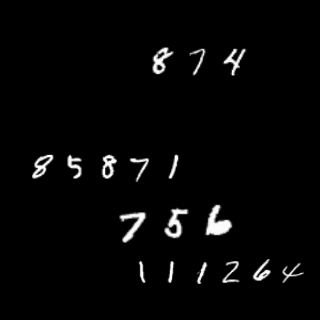 874
85871
756
111264